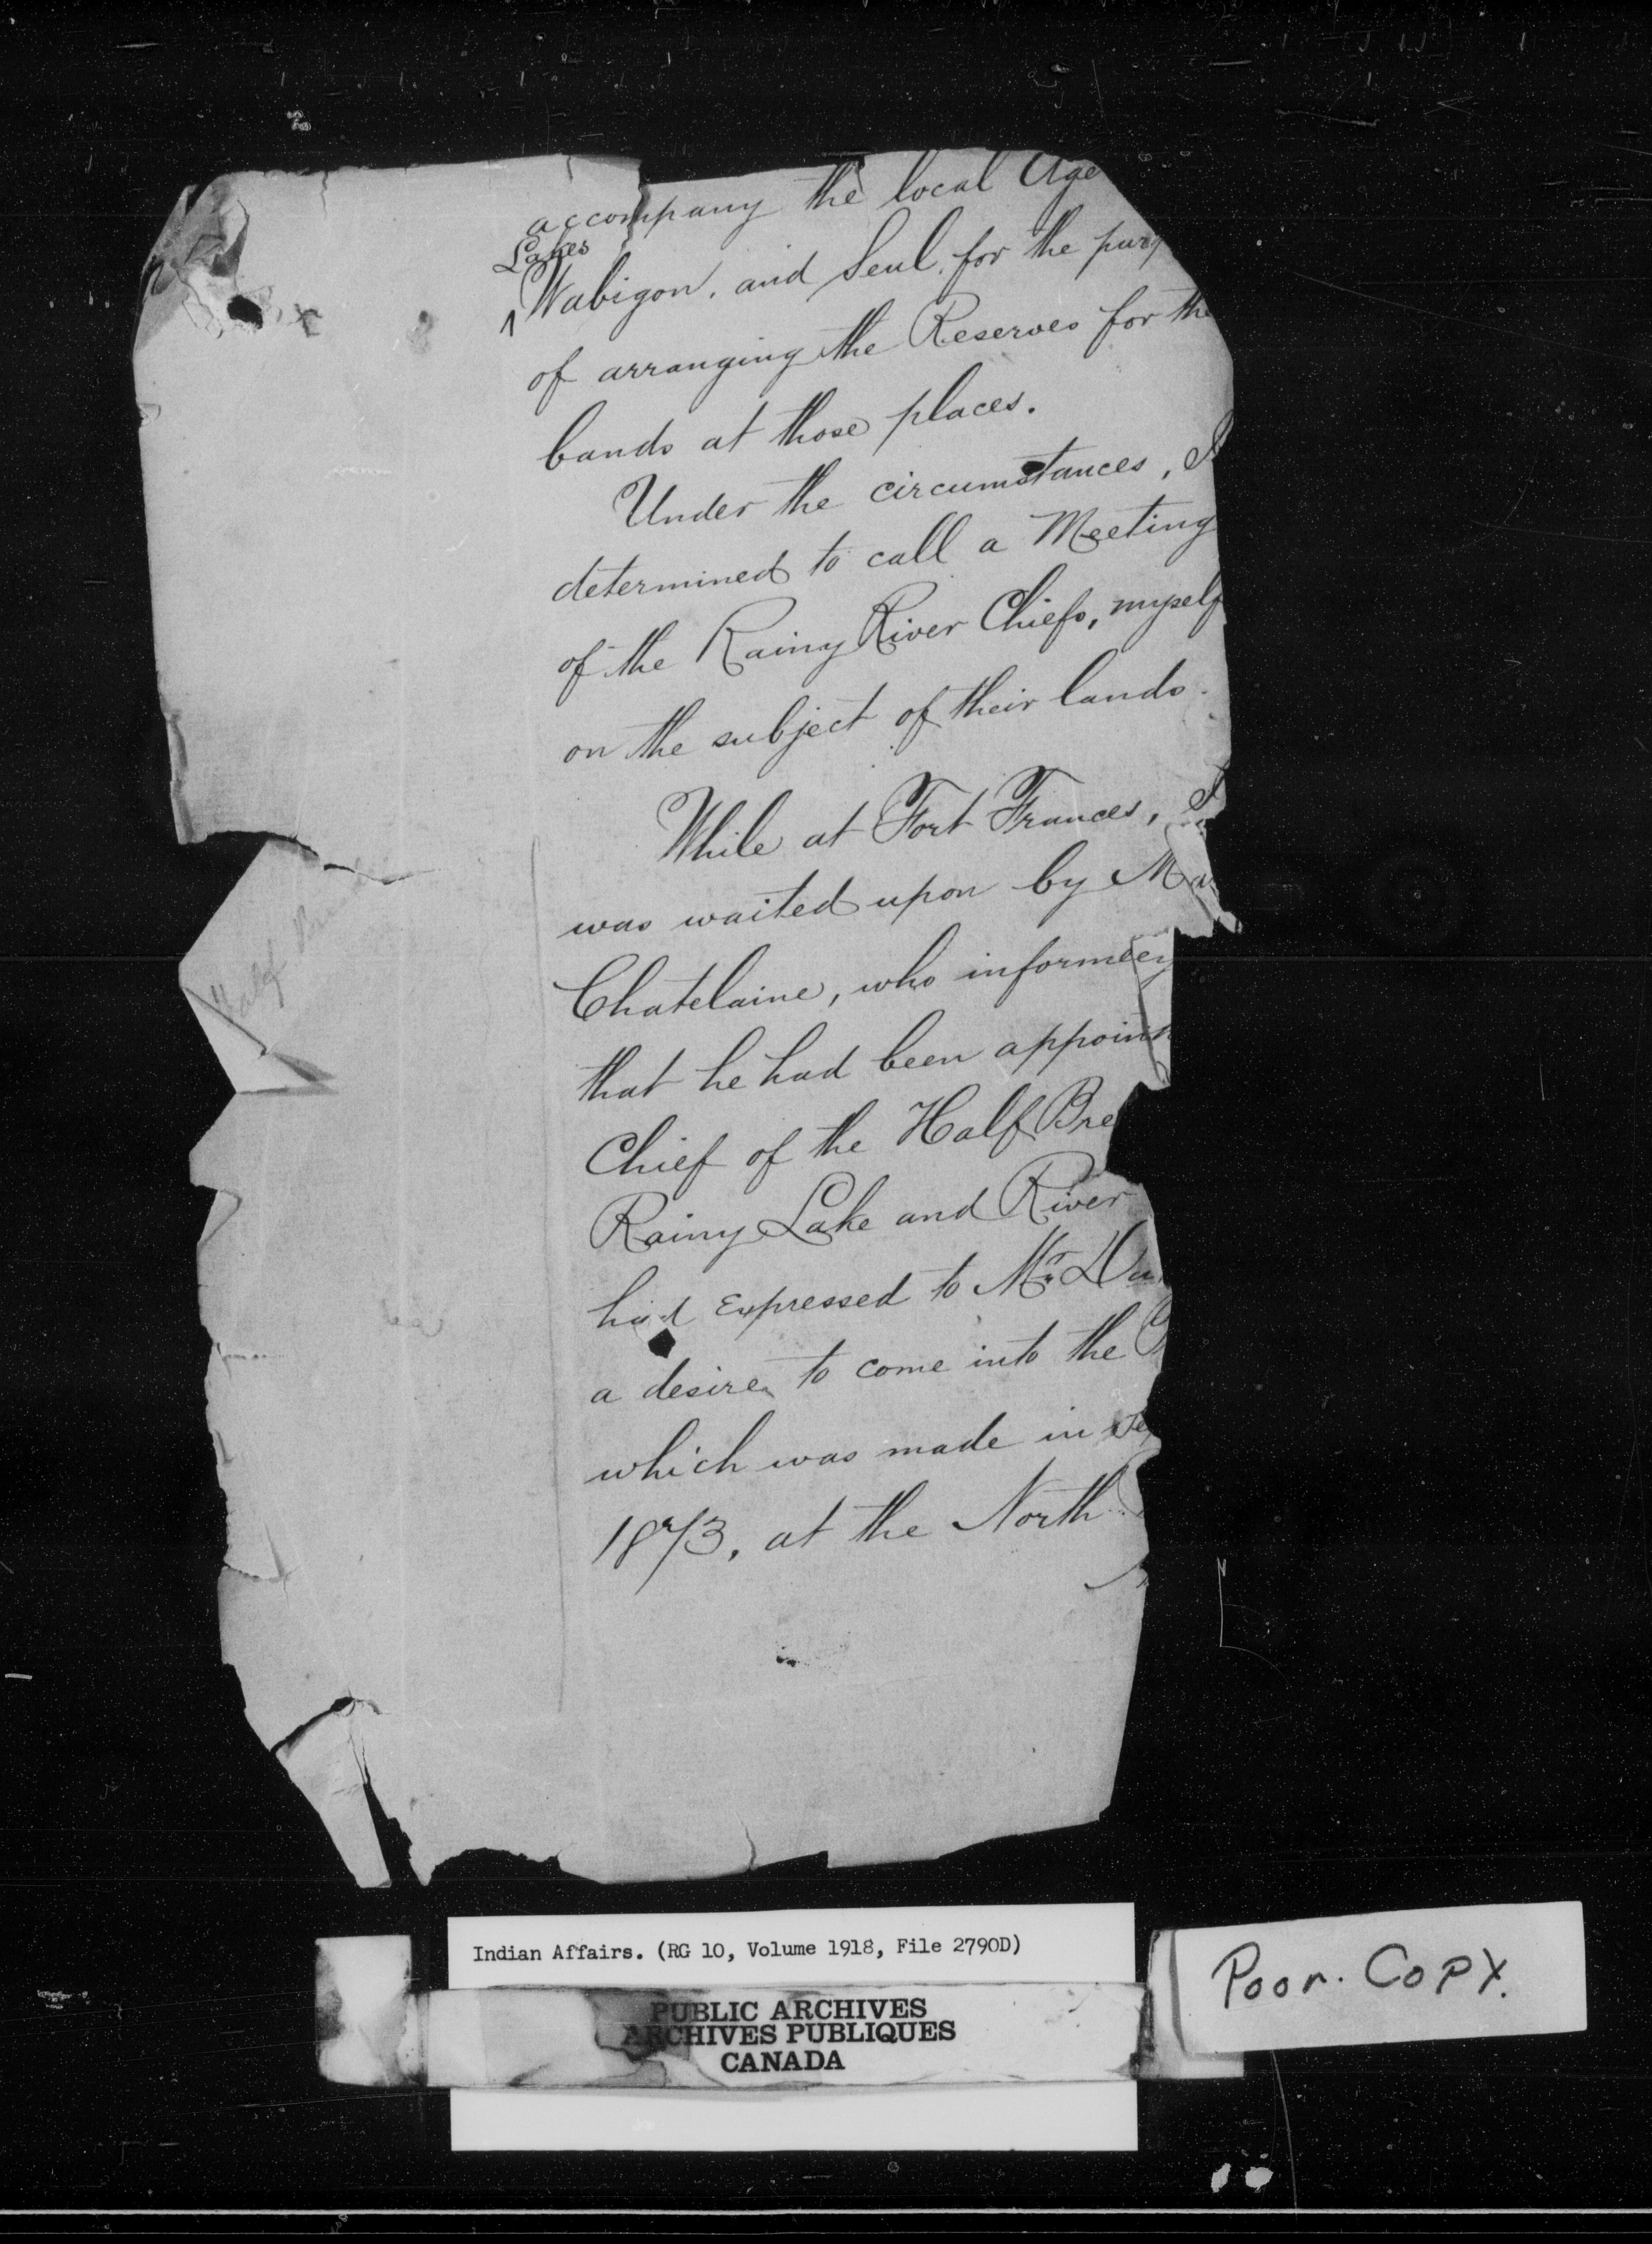 accompany the local Age
Lakes
^Wabigon, and Seul, for the purp
of arranging the Reserves for the
bands at those places.
Under the circumstances, I
determined to call a Meeting
of the Rainy River Chiefs, myself
on the subject of their lands.
While at Fort Frances, I
was waited upon by
Chatelaine, who informed
that he had been appoint
Chief of the Half Bre
Rainy Lake and River
had Expressed to Mr. Da
a desire to come into the
which was made in
1873, at the North
Half
Indian Affairs. (RG 10, Volume 1918, File 2790D)
PUBLIC ARCHIVES
ARCHIVES PUBLIQUES
CANADA
Poor. Copy.